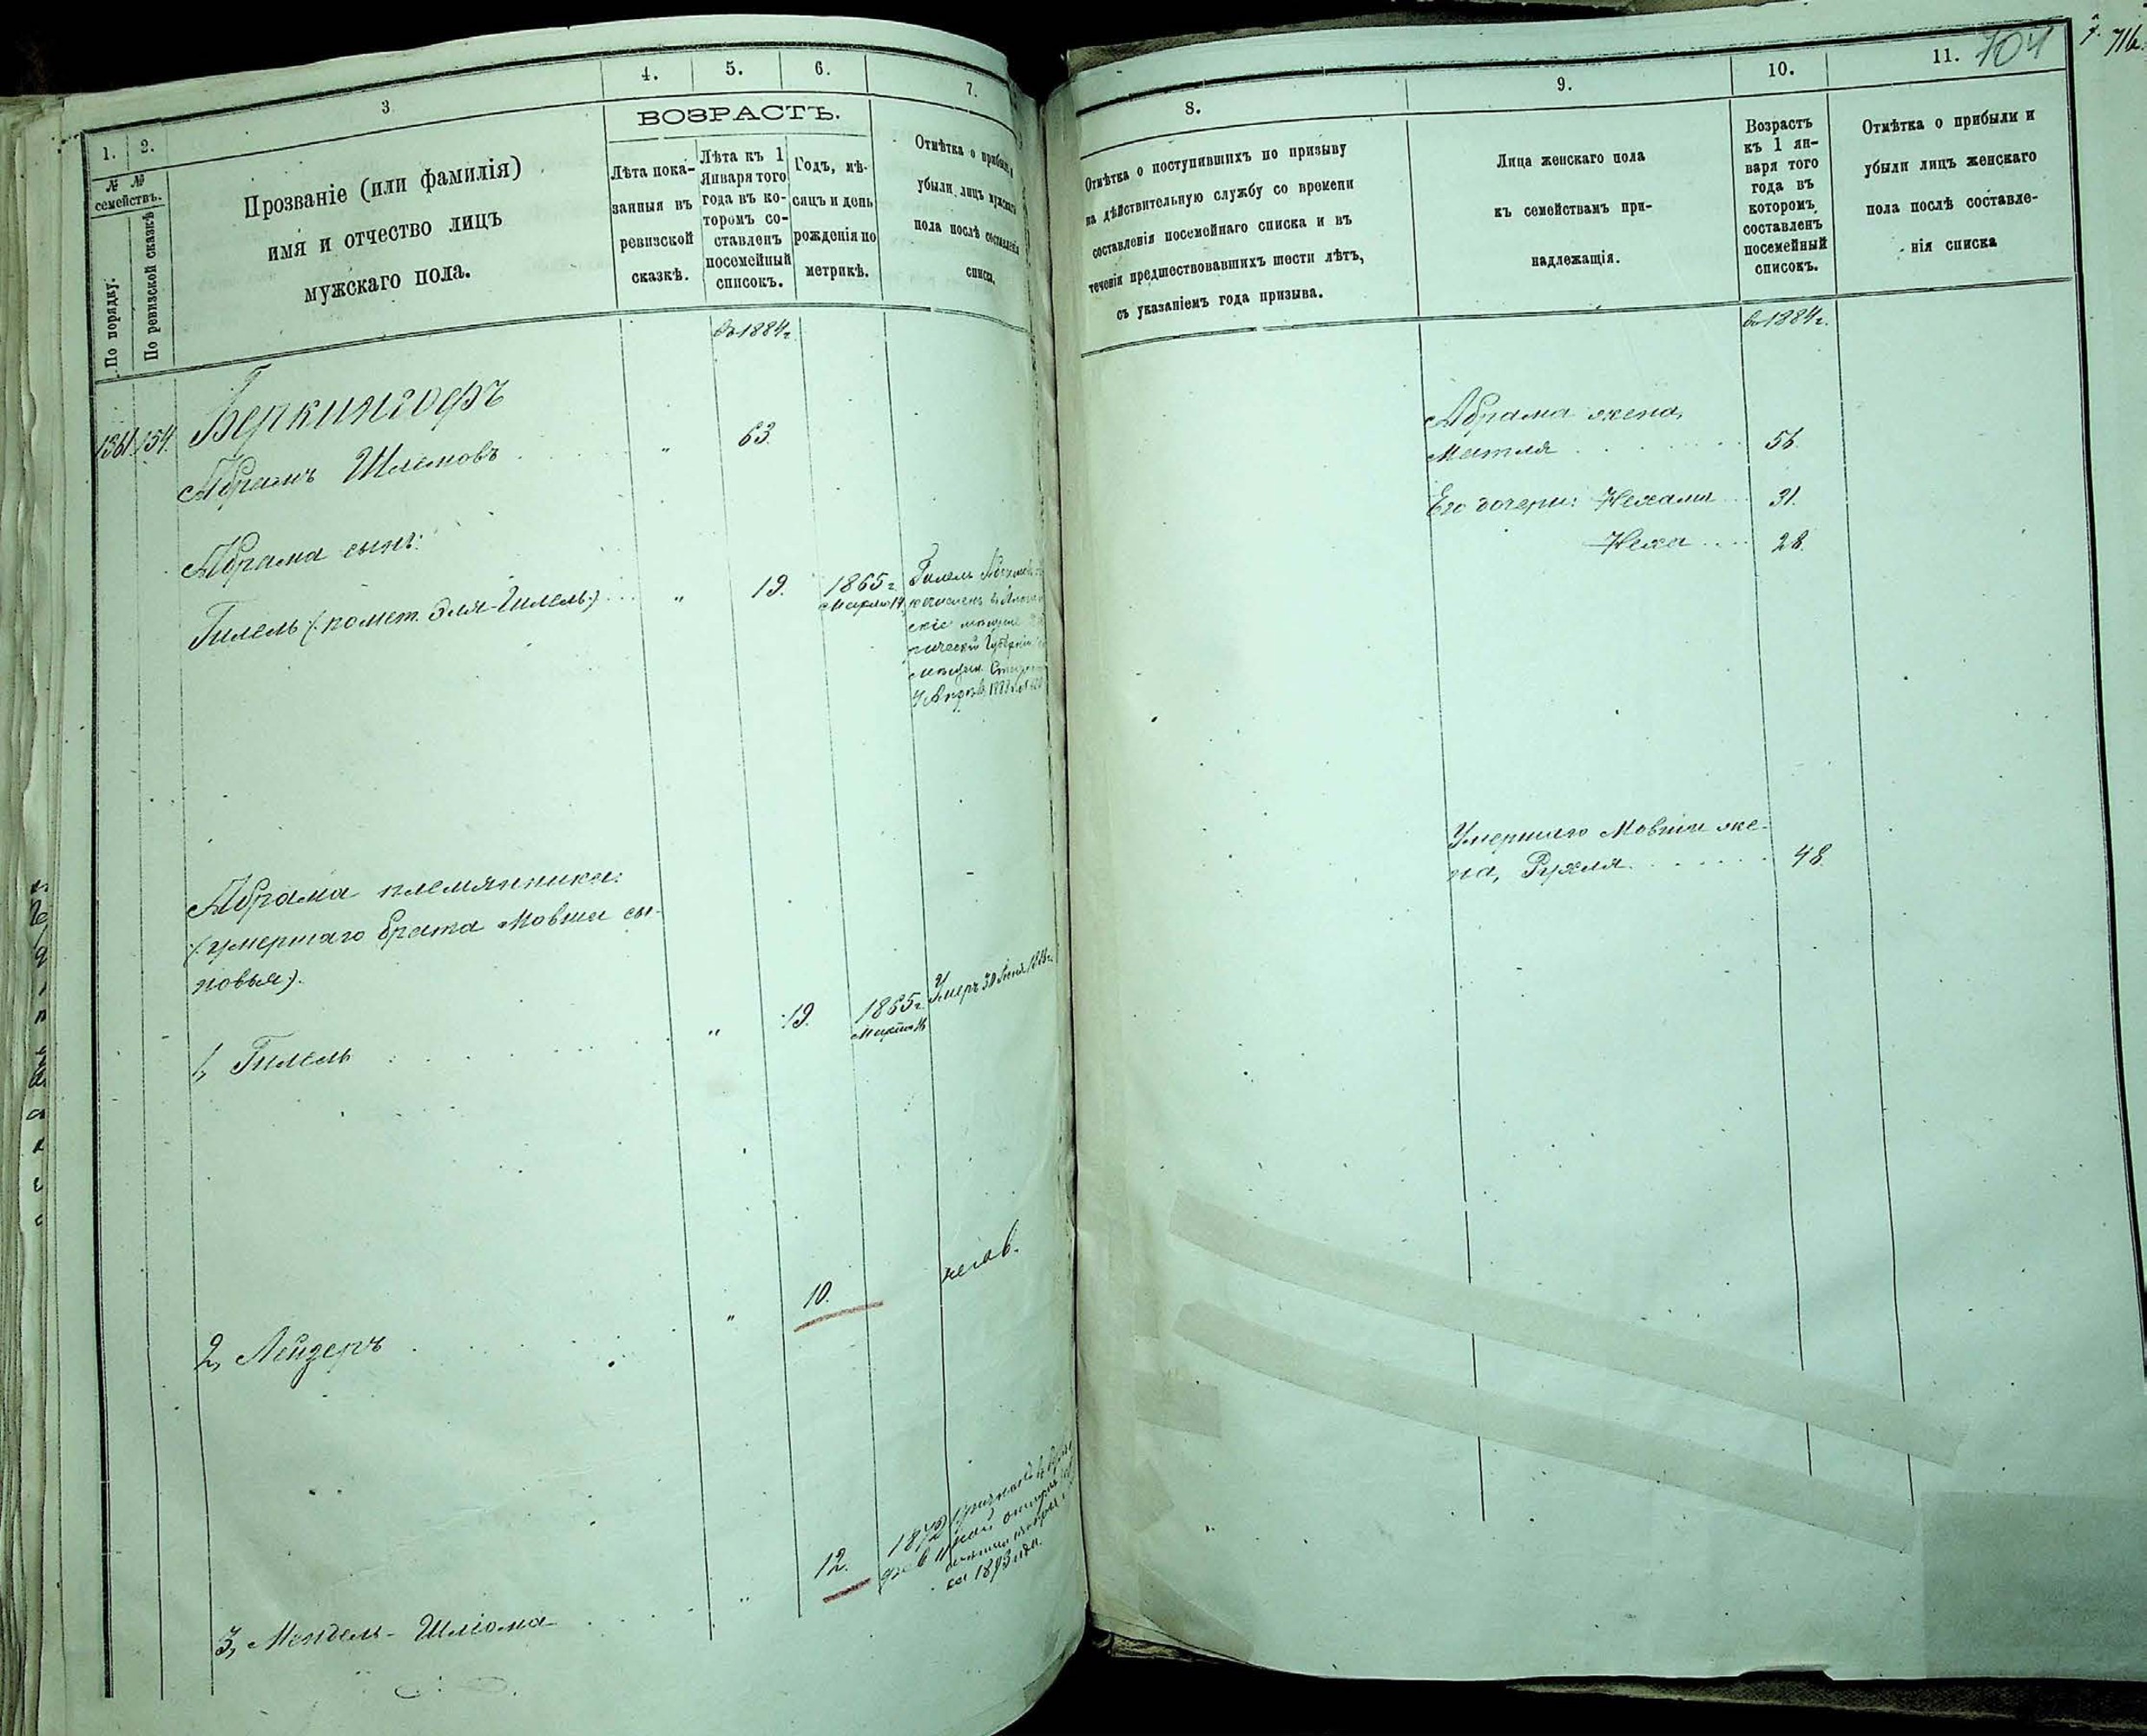 1.
2.
3
4.
5.
6.
7.
№ №
семействъ.
По порядку.
По ревизской сказкѣ
Прозваніе (или фамилія)
имя и отчество лицъ
мужскаго пола.
ВОЗРАСТЪ.
Лѣта пока-
занныя въ
ревизской
сказкѣ.
Лѣта къ 1
Января того
года въ ко-
торомъ со-
ставленъ
посемейный
списокъ.
Годъ, мѣ-
сяцъ и день
рожденія по
метрикѣ.
Отмѣтка о прибыли и
убыли лицъ мужскаго
пола послѣ составленія
списка.
въ 1884 г.
1361. 154.
Беркингофъ
Абрамъ Шлемовъ . " 63.
Абрама сынъ:
Гилель (: помет. Эля-Гилель:) ... " 19. 1865 г.
Марта 14
Гилель
Абрама племянники:
(: умершаго брата Мовши сы-
новья:).
1, Гилель " 19. 1865 г. Умеръ 30
Марта 16
2, Лейзеръ " 10.
3, Мендель-Шліома " 12. 1872
1893 года.
8.
9.
10.
11.
704
716.
Отмѣтка о поступившихъ по призыву
на дѣйствительную службу со времени
составленія посемейнаго списка и въ
теченіи предшествовавшихъ шести лѣтъ,
съ указаніемъ года призыва.
Лица женскаго пола
къ семействамъ при-
надлежащія.
Возрастъ
къ 1 ян-
варя того
года въ
которомъ
составленъ
посемейный
списокъ.
Отмѣтка о прибыли и
убыли лицъ женскаго
пола послѣ составле-
нія списка
въ 1884 г.
Абрама жена,
Матля . . . . . 56.
Его дочери: Нехама ... 31.
Неха .... 28.
Умершаго Мовши же-
на, Рухля . . . . . 48.